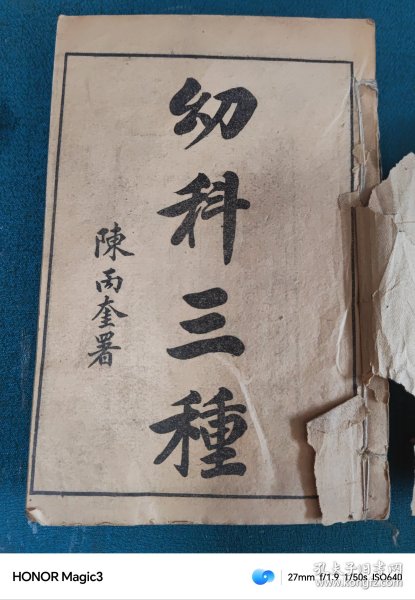 幼科三種
陳丙奎署
HONOR Magic3
27mm f/1.9 1/50s ISO640
孔夫子旧书网